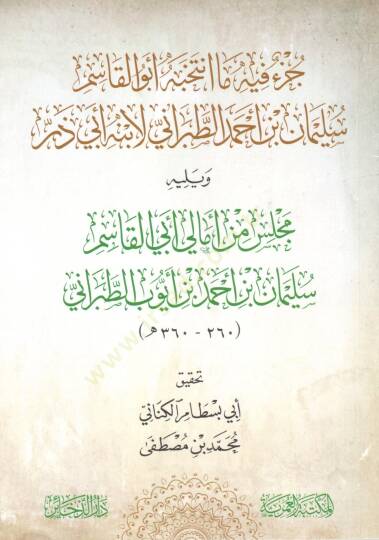 جُزْءٌ فِيهِ مَا انْتَخَبَهُ أَبُو القَاسِمِ
سُلَيْمَان بْن أَحْمَد الطَّبَرَانِيّ لِابْنِهِ أَبِي ذَرٍّ
وَيَلِيهِ
مَجْلِسٌ مِنْ أَمَالِي أَبِي القَاسِمِ
سُلَيْمَان بْن أَحْمَد بْن أَيُّوب الطَّبَرَانِيّ
(٢٦٠ - ٣٦٠ هـ)
تحقيق
أَبِي بِسْطَامٍ الكِنَانِيّ
مُحَمَّد بْن مُصْطَفَى
المكتبة العمرية
دار الذخائر